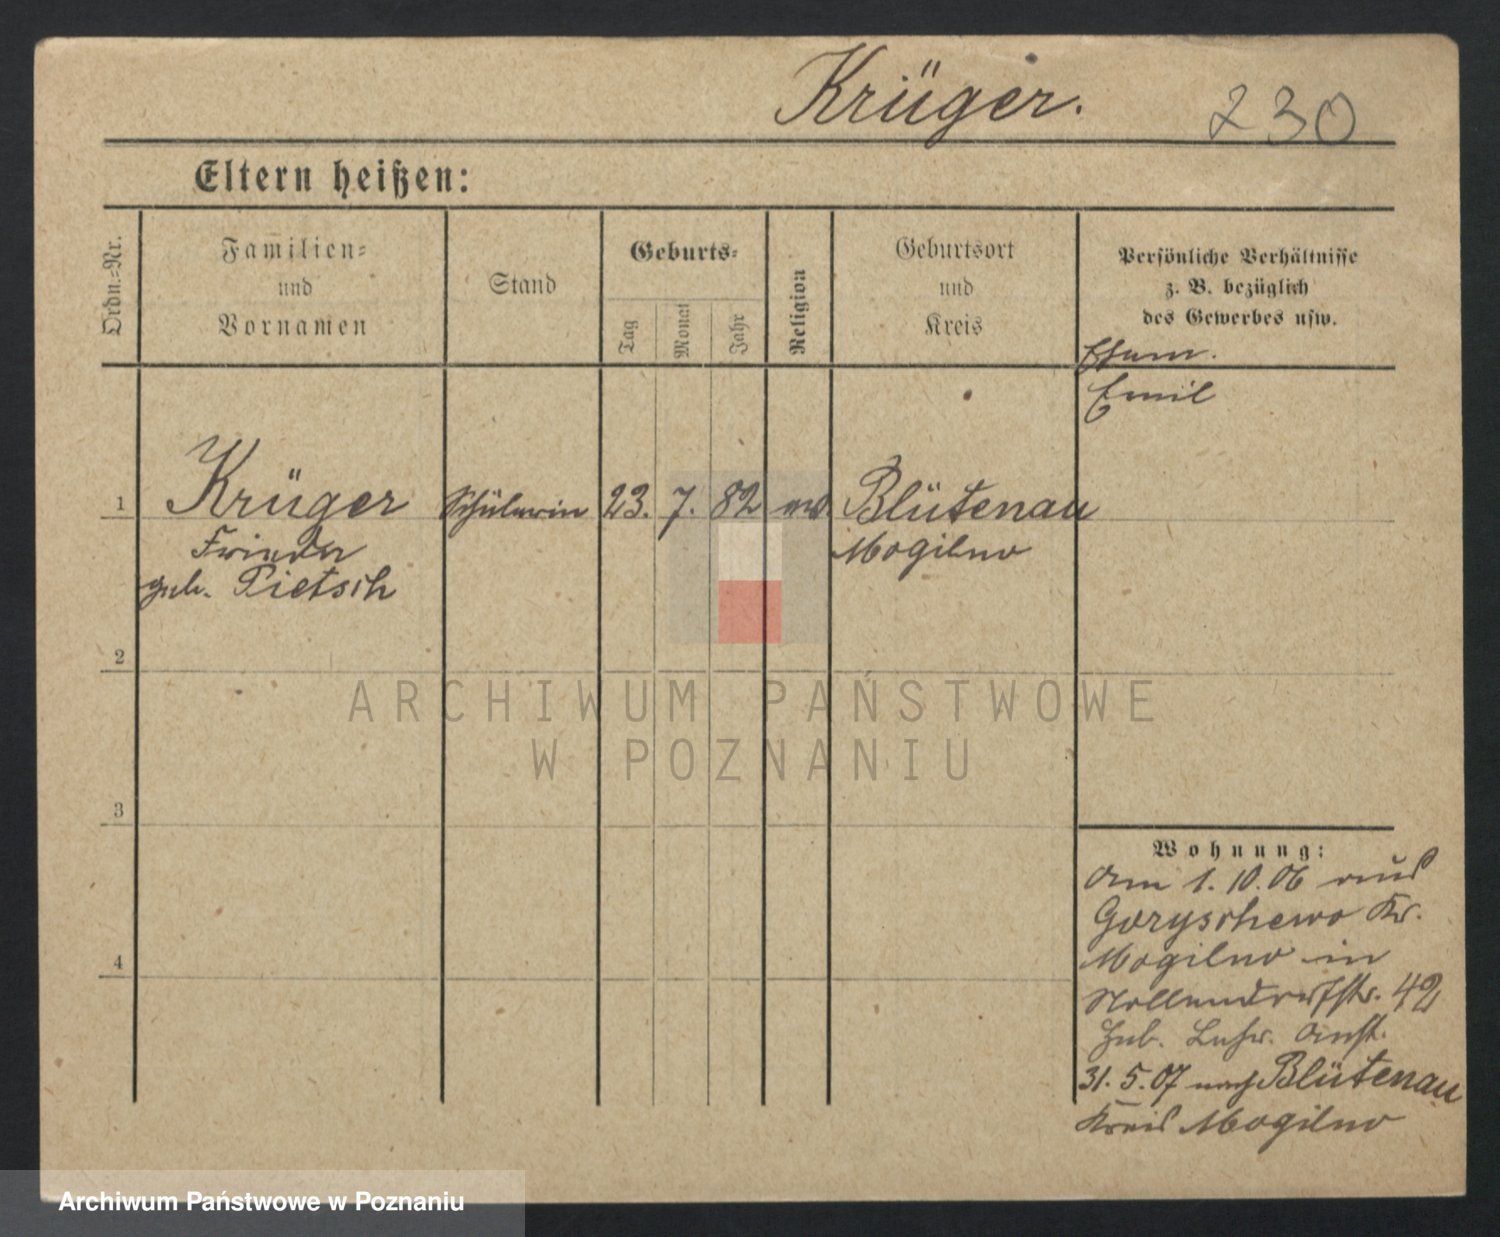 Krüger. 230
Eltern heißen:
Ordn.=Nr.
Familien=
und
Vornamen
Stand
Geburts=
Tag
Monat
Jahr
Religion
Geburtsort
und
Kreis
Persönliche Verhältnisse
z. B. bezüglich
des Gewerbes usw.
Ehem.
Emil
1 Krüger Schülerin 23. 7. 82 ev. Blütenau
Frieda Mogilno
geb. Pietsch
2
3
4
Wohnung:
Am 1. 10. 06 aus
Goryschewo Kr.
Mogilno in
42
Heb. Lehr. Anst.
31. 5. 07 nach Blütenau
Kreis Mogilno
ARCHIWUM PAŃSTWOWE
W POZNANIU
Archiwum Państwowe w Poznaniu